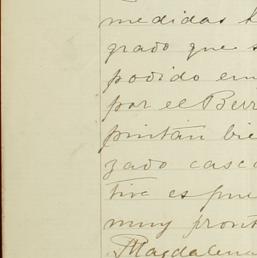 medidas
grado que
podido em
por el Berr
pintan bie
zado casc
tive es pue
muy pront
Magdalena